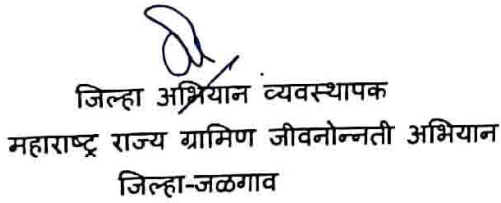 जिल्हा अभियान व्यवस्थापक
महाराष्ट्र राज्य ग्रामिण जीवनोन्नती अभियान
जिल्हा-जळगाव